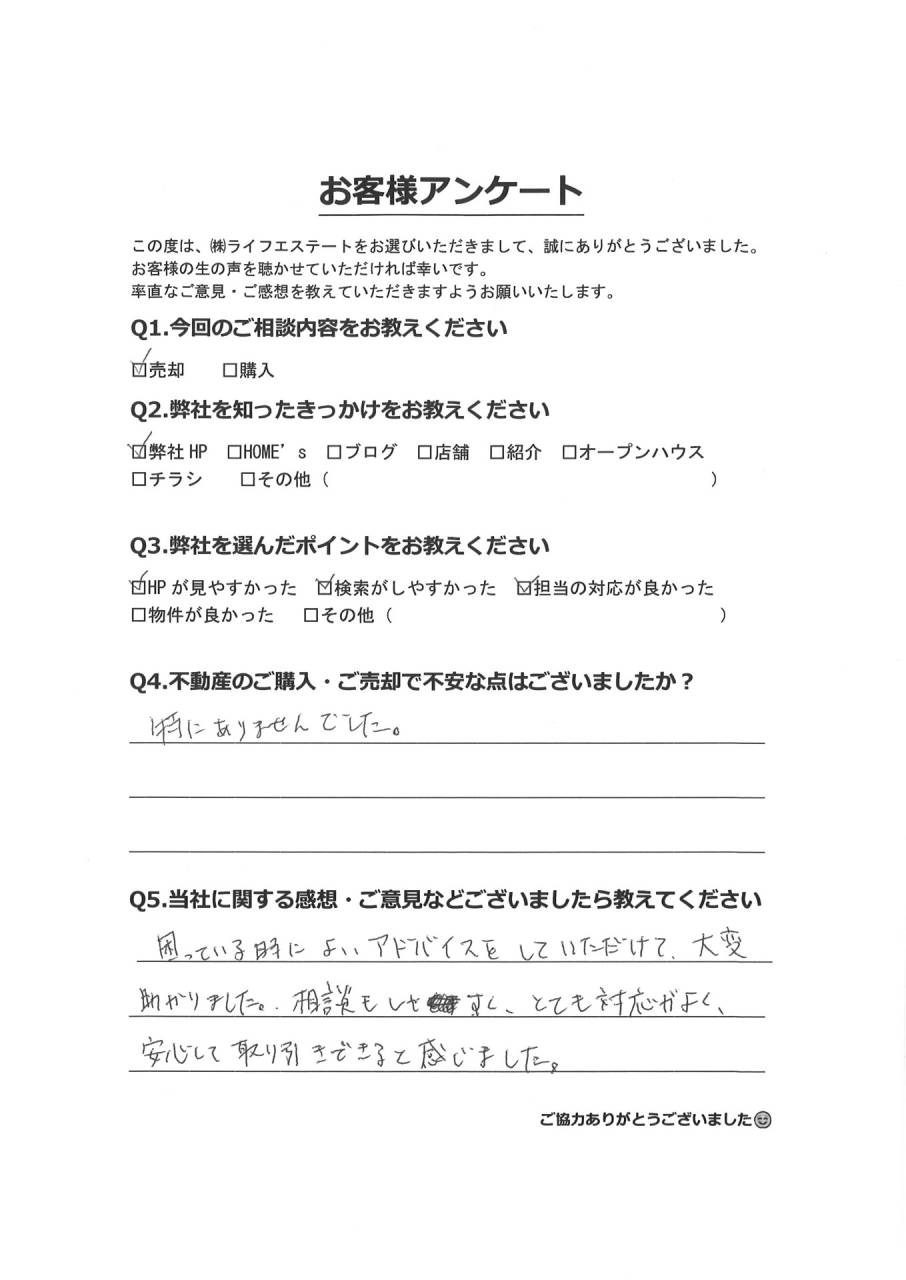 お客様アンケート
この度は、㈱ライフエステートをお選びいただきまして、誠にありがとうございました。
お客様の生の声を聴かせていただければ幸いです。
率直なご意見・ご感想を教えていただきますようお願いいたします。
Q1.今回のご相談内容をお教えください
☑売却 □購入
Q2.弊社を知ったきっかけをお教えください
☑弊社 HP □HOME’s □ブログ □店舗 □紹介 □オープンハウス
□チラシ □その他（ ）
Q3.弊社を選んだポイントをお教えください
☑HP が見やすかった ☑検索がしやすかった ☑担当の対応が良かった
□物件が良かった □その他（ ）
Q4.不動産のご購入・ご売却で不安な点はございましたか？
特にありませんでした。
Q5.当社に関する感想・ご意見などございましたら教えてください
困っている時によいアドバイスをしていただけて、大変
助かりました。相談もしやすく、とても対応がよく、
安心して取り引きできると感じました。
ご協力ありがとうございました😊